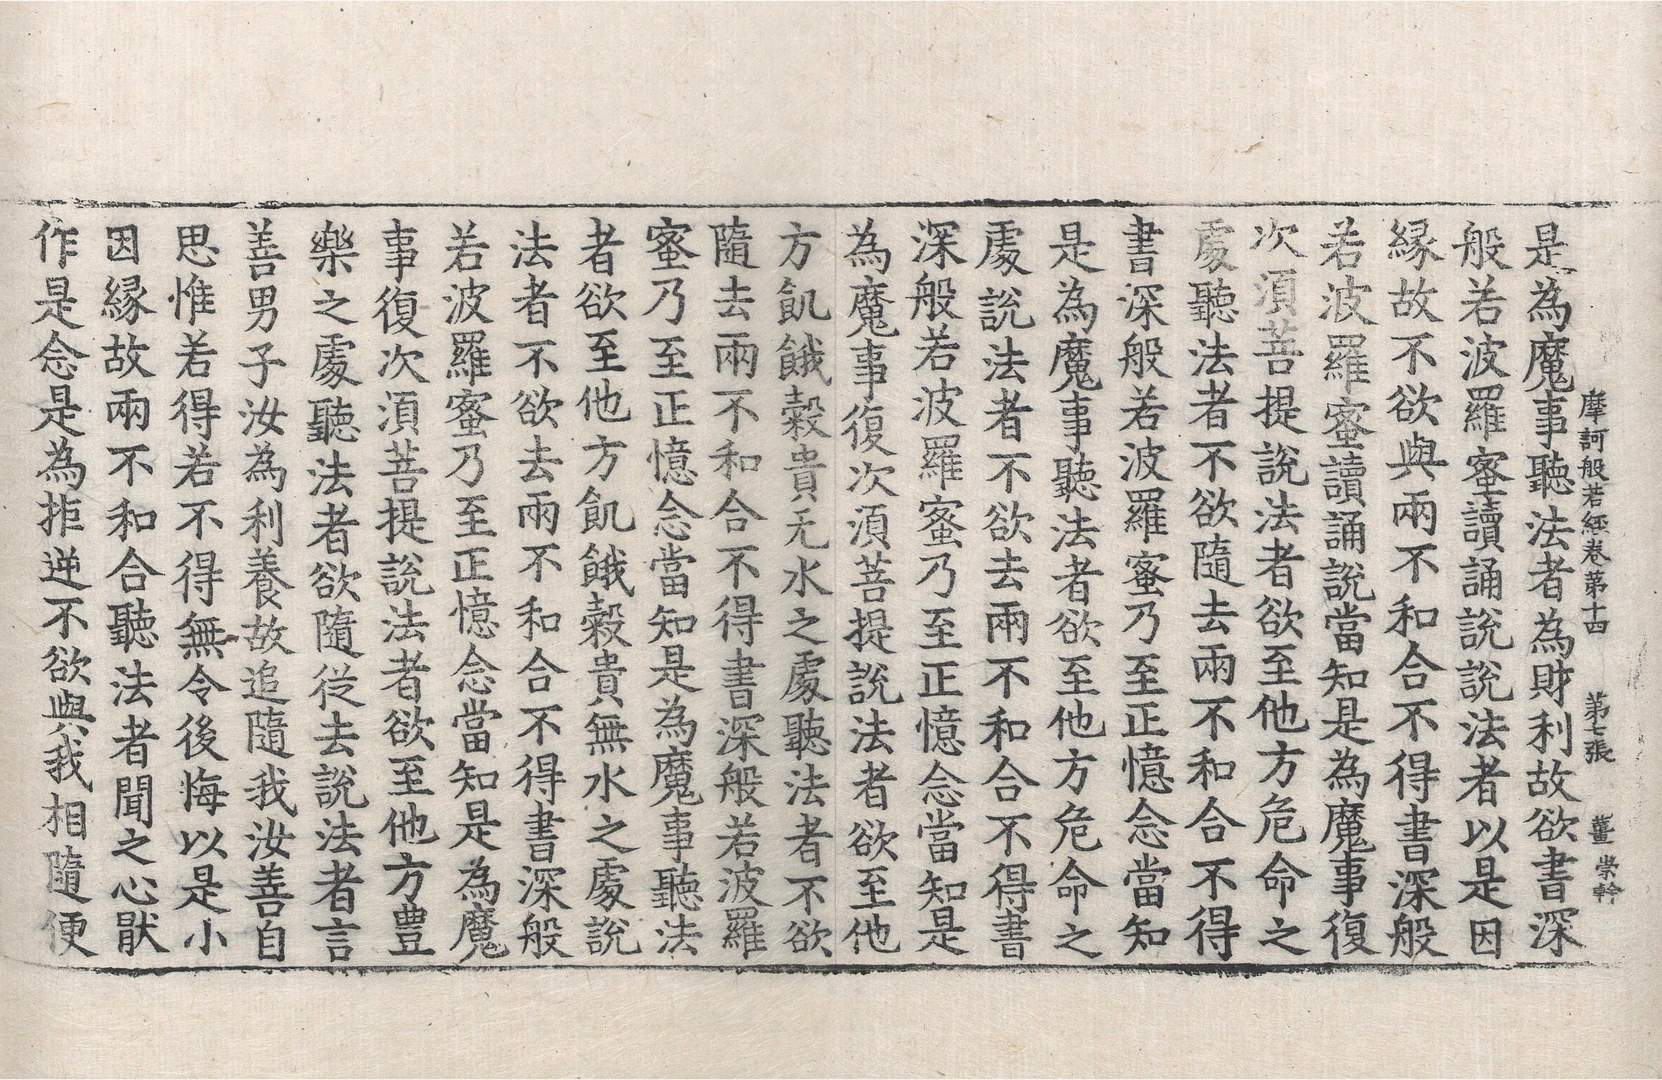 摩訶般若經卷第十四　第七張　薑　崇幹
是為魔事聽法者為財利故欲書深
般若波羅蜜讀誦說說法者以是因
緣故不欲與兩不和合不得書深般
若波羅蜜讀誦說當知是為魔事復
次湏菩提說法者欲至他方危命之
處聽法者不欲隨去兩不和合不得
書深般若波羅蜜乃至正憶念當知
是為魔事聽法者欲至他方危命之
處說法者不欲去兩不和合不得書
深般若波羅蜜乃至正憶念當知是
為魔事復次湏菩提說法者欲至他
方飢餓穀貴无水之處聽法者不欲
隨去兩不和合不得書深般若波羅
蜜乃至正憶念當知是為魔事聽法
者欲至他方飢餓穀貴無水之處說
法者不欲去兩不和合不得書深般
若波羅蜜乃至正憶念當知是為魔
事復次湏菩提說法者欲至他方豊
樂之處聽法者欲隨從去說法者言
善男子汝為利養故追隨我汝善自
思惟若得若不得無令後悔以是小
因緣故兩不和合聽法者聞之心猒
作是念是為拒逆不欲與我相隨便